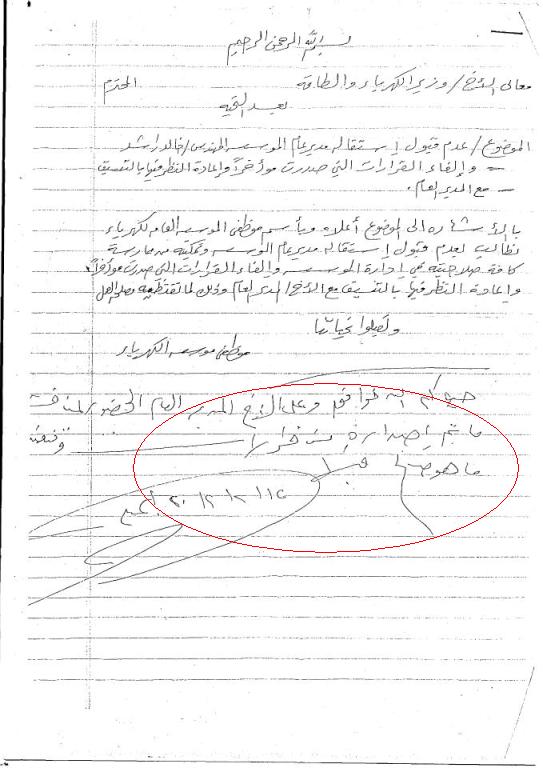 بسم الله الرحمن الرحيم
معالي الأخ/ وزير الكهرباء والطاقة المحترم
بعد التحية
الموضوع/ عدم قبول إستقاله مدير عام الموسسه المهندس/ خالد راشد
- وإلغاء القرارات التي صدرت مؤخراً وإعادة النظر فيها بالتنسيق
- مع المدير العام.
بالأشاره الى الموضوع أعلاه وبأسم موظفي الموسسه العامه لكهرباء
نطالب بعدم قبول إستقاله مدير عام الموسسه وتمكينه من ممارسة
كافة صلاحيته في إدارة الموسسه وإلغاء القرارات التي صدرت مؤخراً
وإعادة النظر فيها بالتنسيق مع الأخ/ المدير العام وذلك لما تقتضيه مصلحة العمل
وتقبلوا تحياتنا
موظفي موسسه الكهرباء
وعلى الأخ المدير العام الحضور لمناقشة
ما تم إصداره من قرارات
ما هو